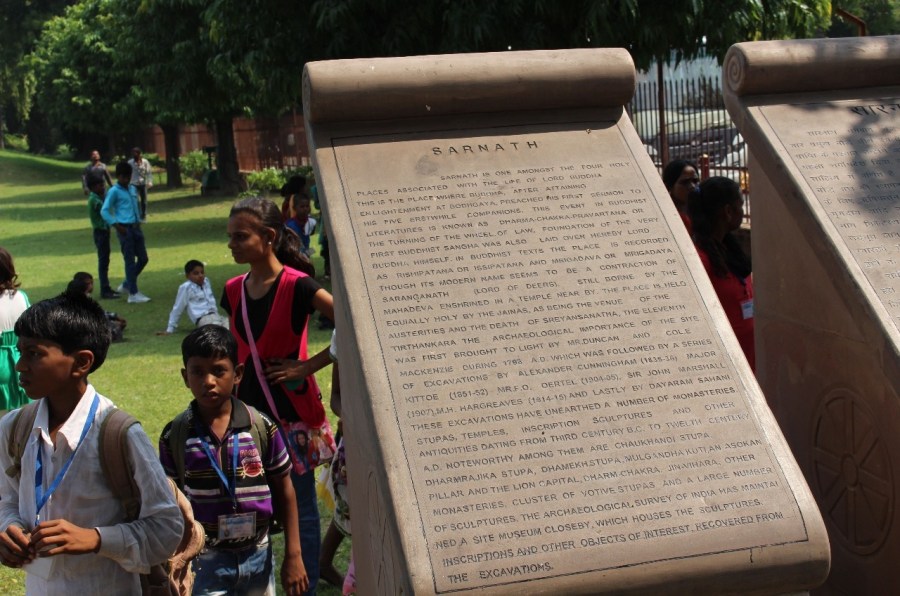 SARNATH
SARNATH IS ONE AMONGST THE FOUR HOLY
PLACES ASSOCIATED WITH THE LIFE OF LORD BUDDHA
THIS IS THE PLACE WHERE BUDDHA, AFTER ATTAINING
ENLIGHTENMENT AT BODHGAYA, PREACHED HIS FIRST SERMON TO
HIS FIVE ERSTWHILE COMPANIONS. THIS EVENT IN BUDDHIST
LITERATURES IS KNOWN AS DHARMA-CHAKRA-PRAVARTANA OR
THE TURNING OF THE WHEEL OF LAW, FOUNDATION OF THE VERY
FIRST BUDDHIST SANGHA WAS ALSO LAID OVER HEREBY LORD
BUDDHA HIMSELF. IN BUDDHIST TEXTS THE PLACE IS RECORDED
AS RISHIPATANA OR ISSIPATANA AND MRIGADAVA OR MRIGADAYA
THOUGH ITS MODERN NAME SEEMS TO BE A CONTRACTION OF
SARANGANATH (LORD OF DEERS), STILL BORNE BY THE
MAHADEVA ENSHRINED IN A TEMPLE NEAR BY. THE PLACE IS HELD
EQUALLY HOLY BY THE JAINAS, AS BEING THE VENUE OF THE
AUSTERITIES AND THE DEATH OF SREYANSANATHA, THE ELEVENTH
TIRTHANKARA THE ARCHAEOLOGICAL IMPORTANCE OF THE SITE
WAS FIRST BROUGHT TO LIGHT BY MR.DUNCAN AND COL E
MACKENZIE DURING 1798 A.D. WHICH WAS FOLLOWED BY A SERIES
OF EXCAVATIONS BY ALEXANDER CUNNINGHAM (1835-36) MAJOR
KITTOE (1851-52) MR.F.O. OERTEL (1904-05), SIR JOHN MARSHALL
(1907),M.H. HARGREAVES (1914-15) AND LASTLY BY DAYARAM SAHANI
THESE EXCAVATIONS HAVE UNEARTHED A NUMBER OF MONASTERIES
STUPAS, TEMPLES, INSCRIPTION SCULPTURES AND OTHER
ANTIQUITIES DATING FROM THIRD CENTURY B.C. TO TWELTH CENTURY
A.D. NOTEWORTHY AMONG THEM ARE CHAUKHANDI STUPA,
DHARMRAJIKA STUPA, DHAMEKH STUPA, MULGANDHA KUTI,AN ASOKAN
PILLAR AND THE LION CAPITAL, DHARM CHAKRA JINAVIHARA, OTHER
MONASTERIES, CLUSTER OF VOTIVE STUPAS AND A LARGE NUMBER
OF SCULPTURES. THE ARCHAEOLOGICAL SURVEY OF INDIA HAS MAINTAI
NED A SITE MUSEUM CLOSEBY, WHICH HOUSES THE SCULPTURES,
INSCRIPTIONS AND OTHER OBJECTS OF INTEREST, RECOVERED FROM
THE EXCAVATIONS.